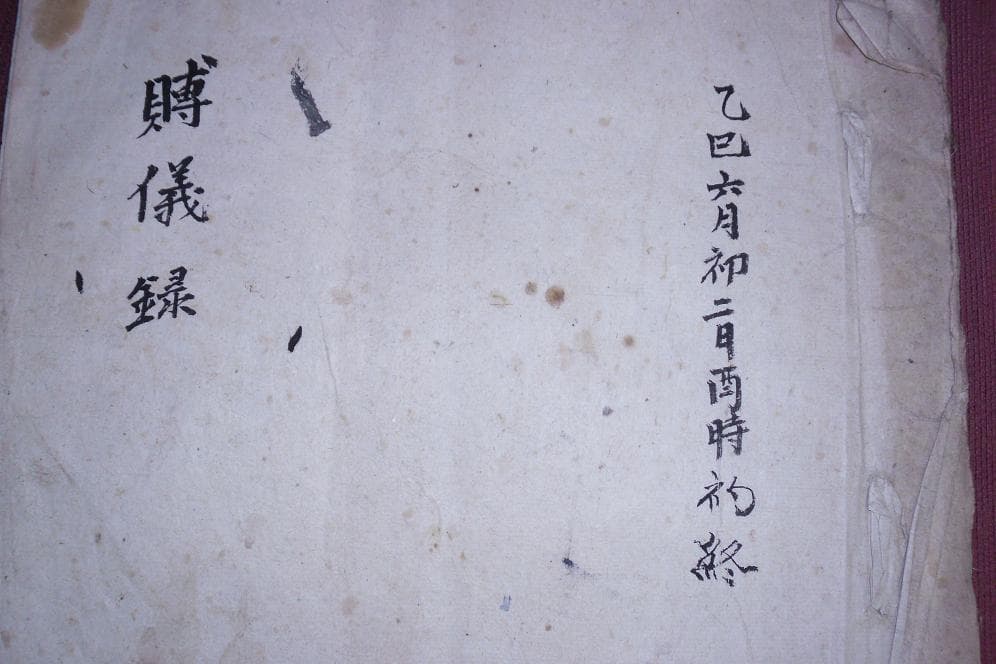 乙巳六月初二日酉時初終
賻儀録